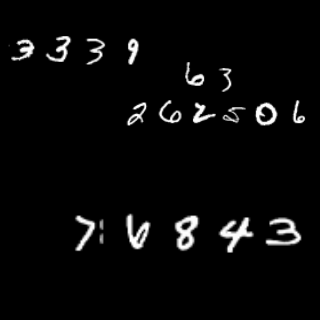 3339
63
262506
76843